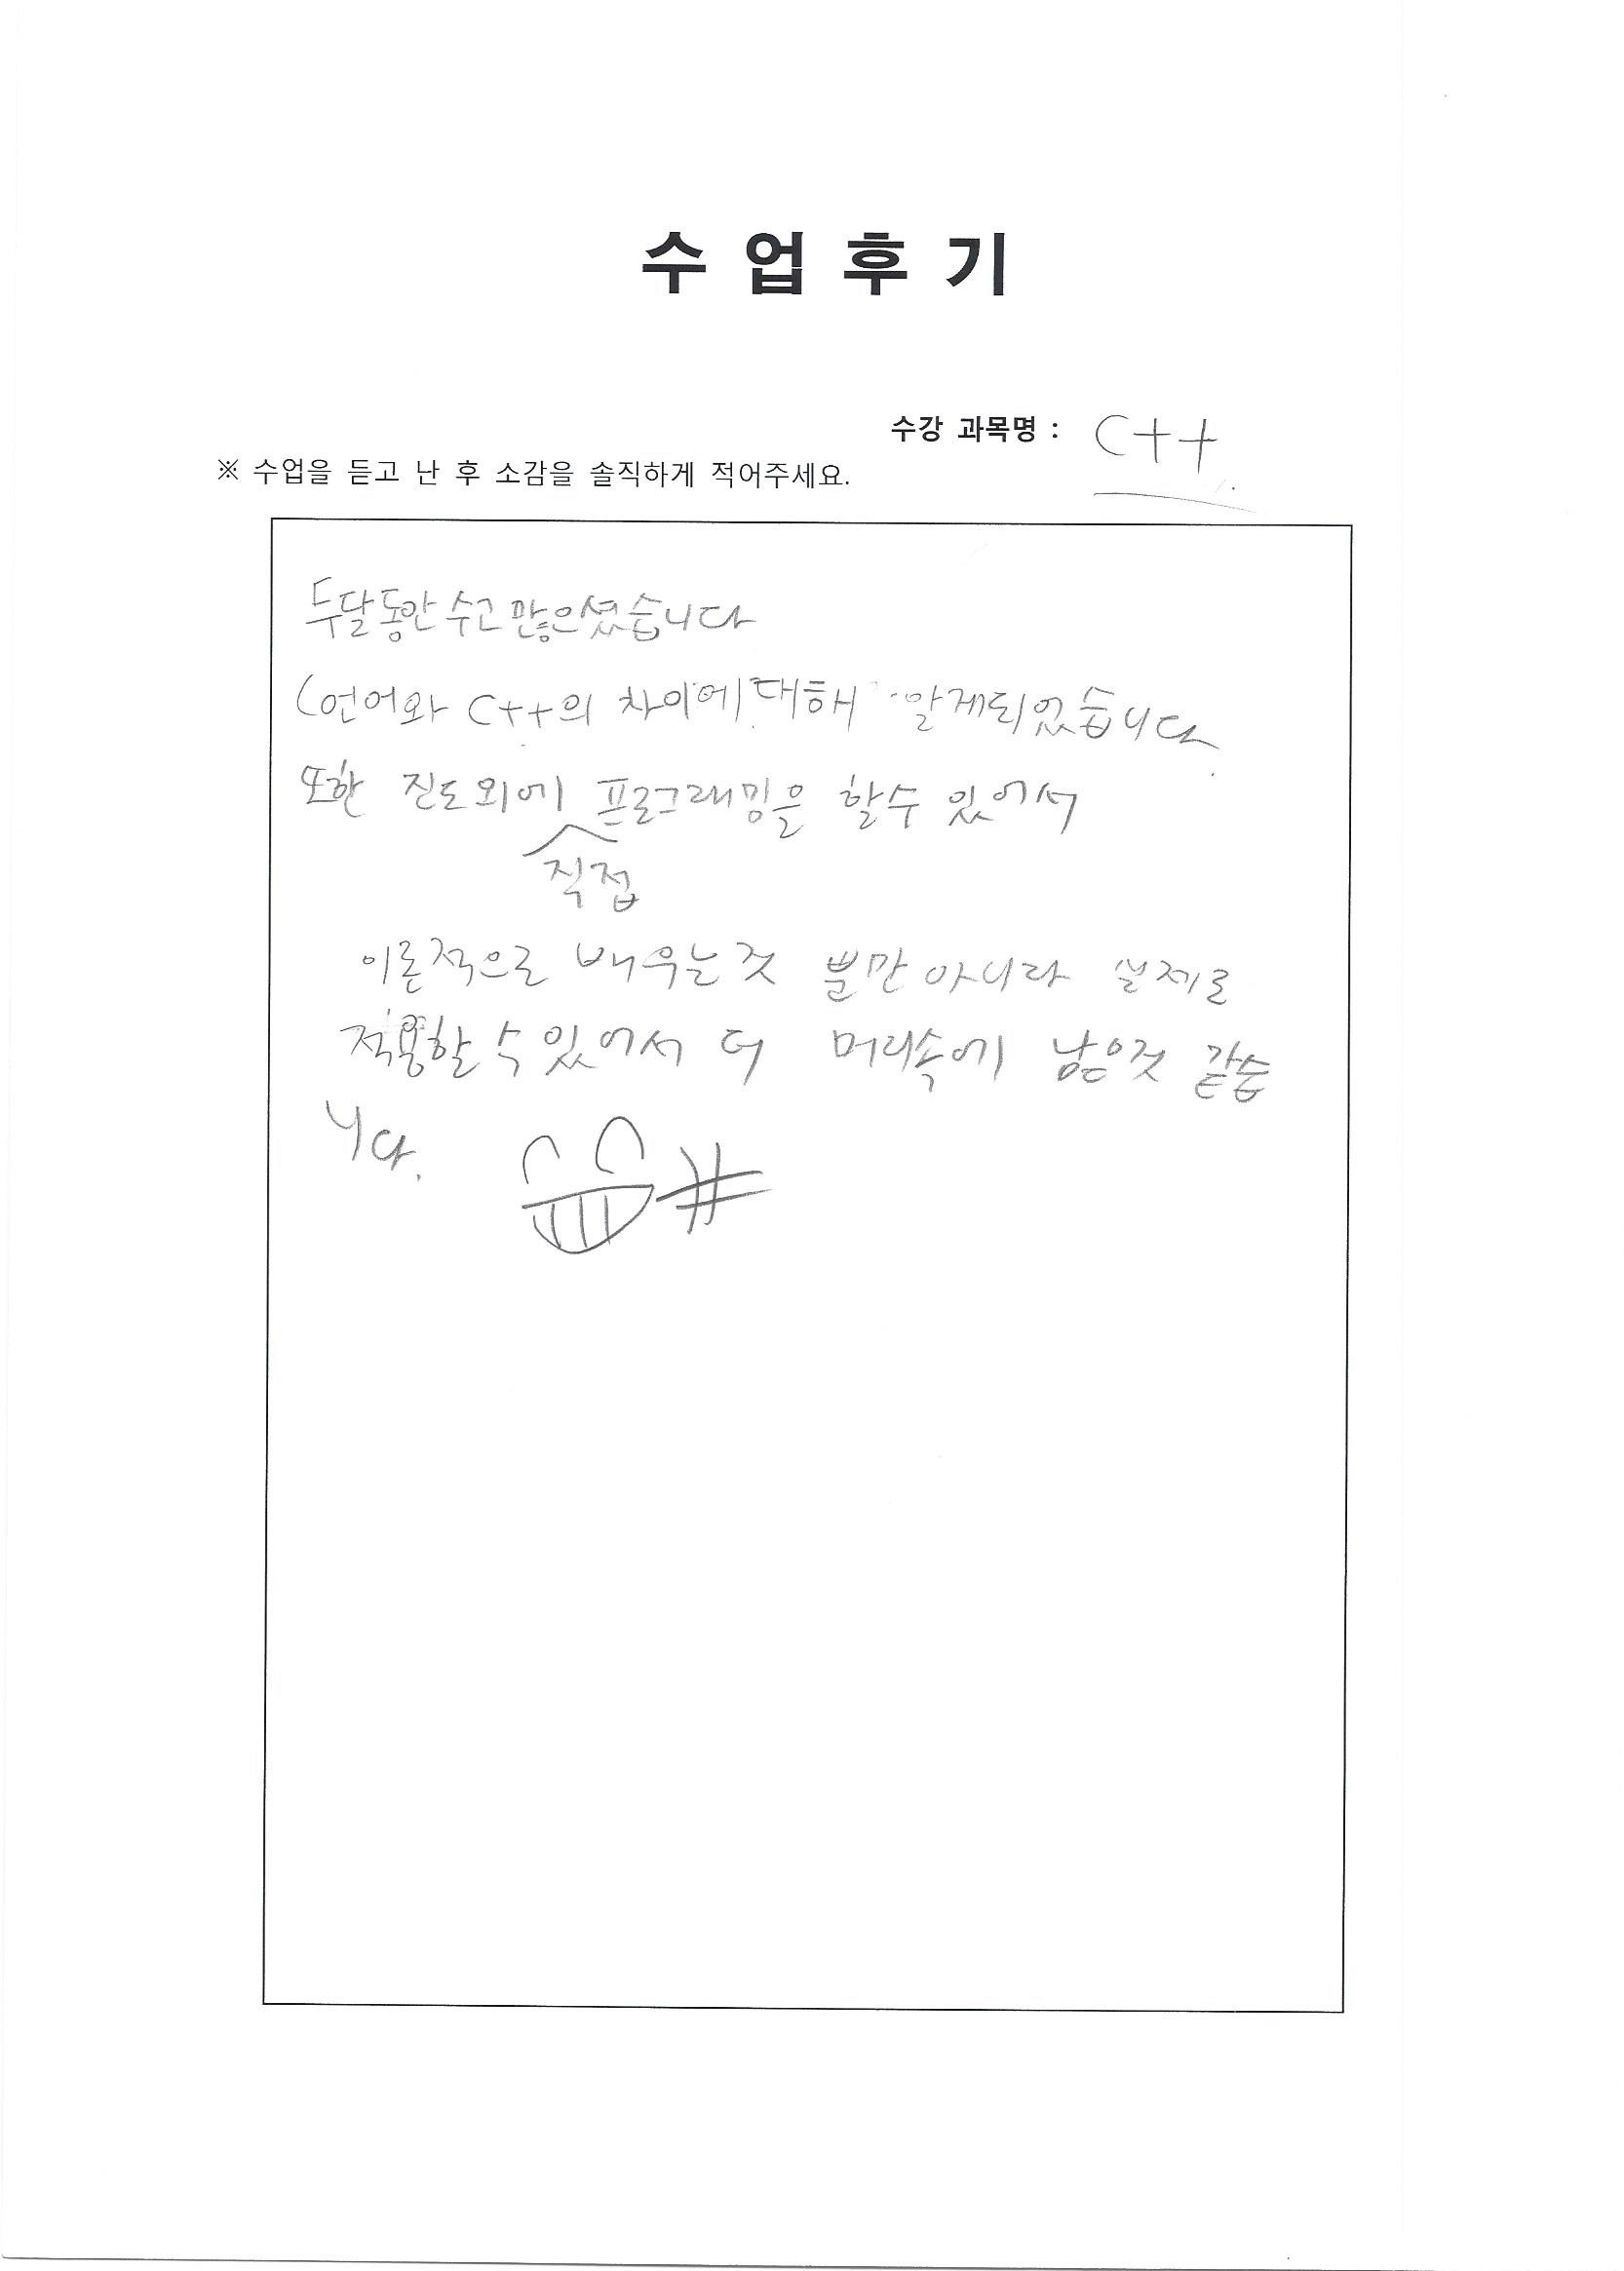 수 업 후 기
수강 과목명 : C++
※ 수업을 듣고 난 후 소감을 솔직하게 적어주세요.
두달동안 수고 많으셨습니다
C언어와 C++의 차이에 대해 알게되었습니다.
또한 진도외에 프로그래밍을 할수 있어서
직접
이론적으로 배우는것 뿐만 아니라 실제로
적용할 수 있어서 더 머리속에 남은것 같습
니다.